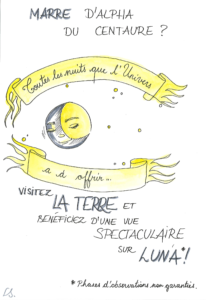 MARRE D'ALPHA
DU CENTAURE ?
Toutes les nuits que l'Univers
a à offrir...
VISITEZ
LA TERRE ET
BÉNÉFICIEZ D'UNE VUE
SPECTACULAIRE
SUR LUNA*!
* Phases d'observations non garanties.